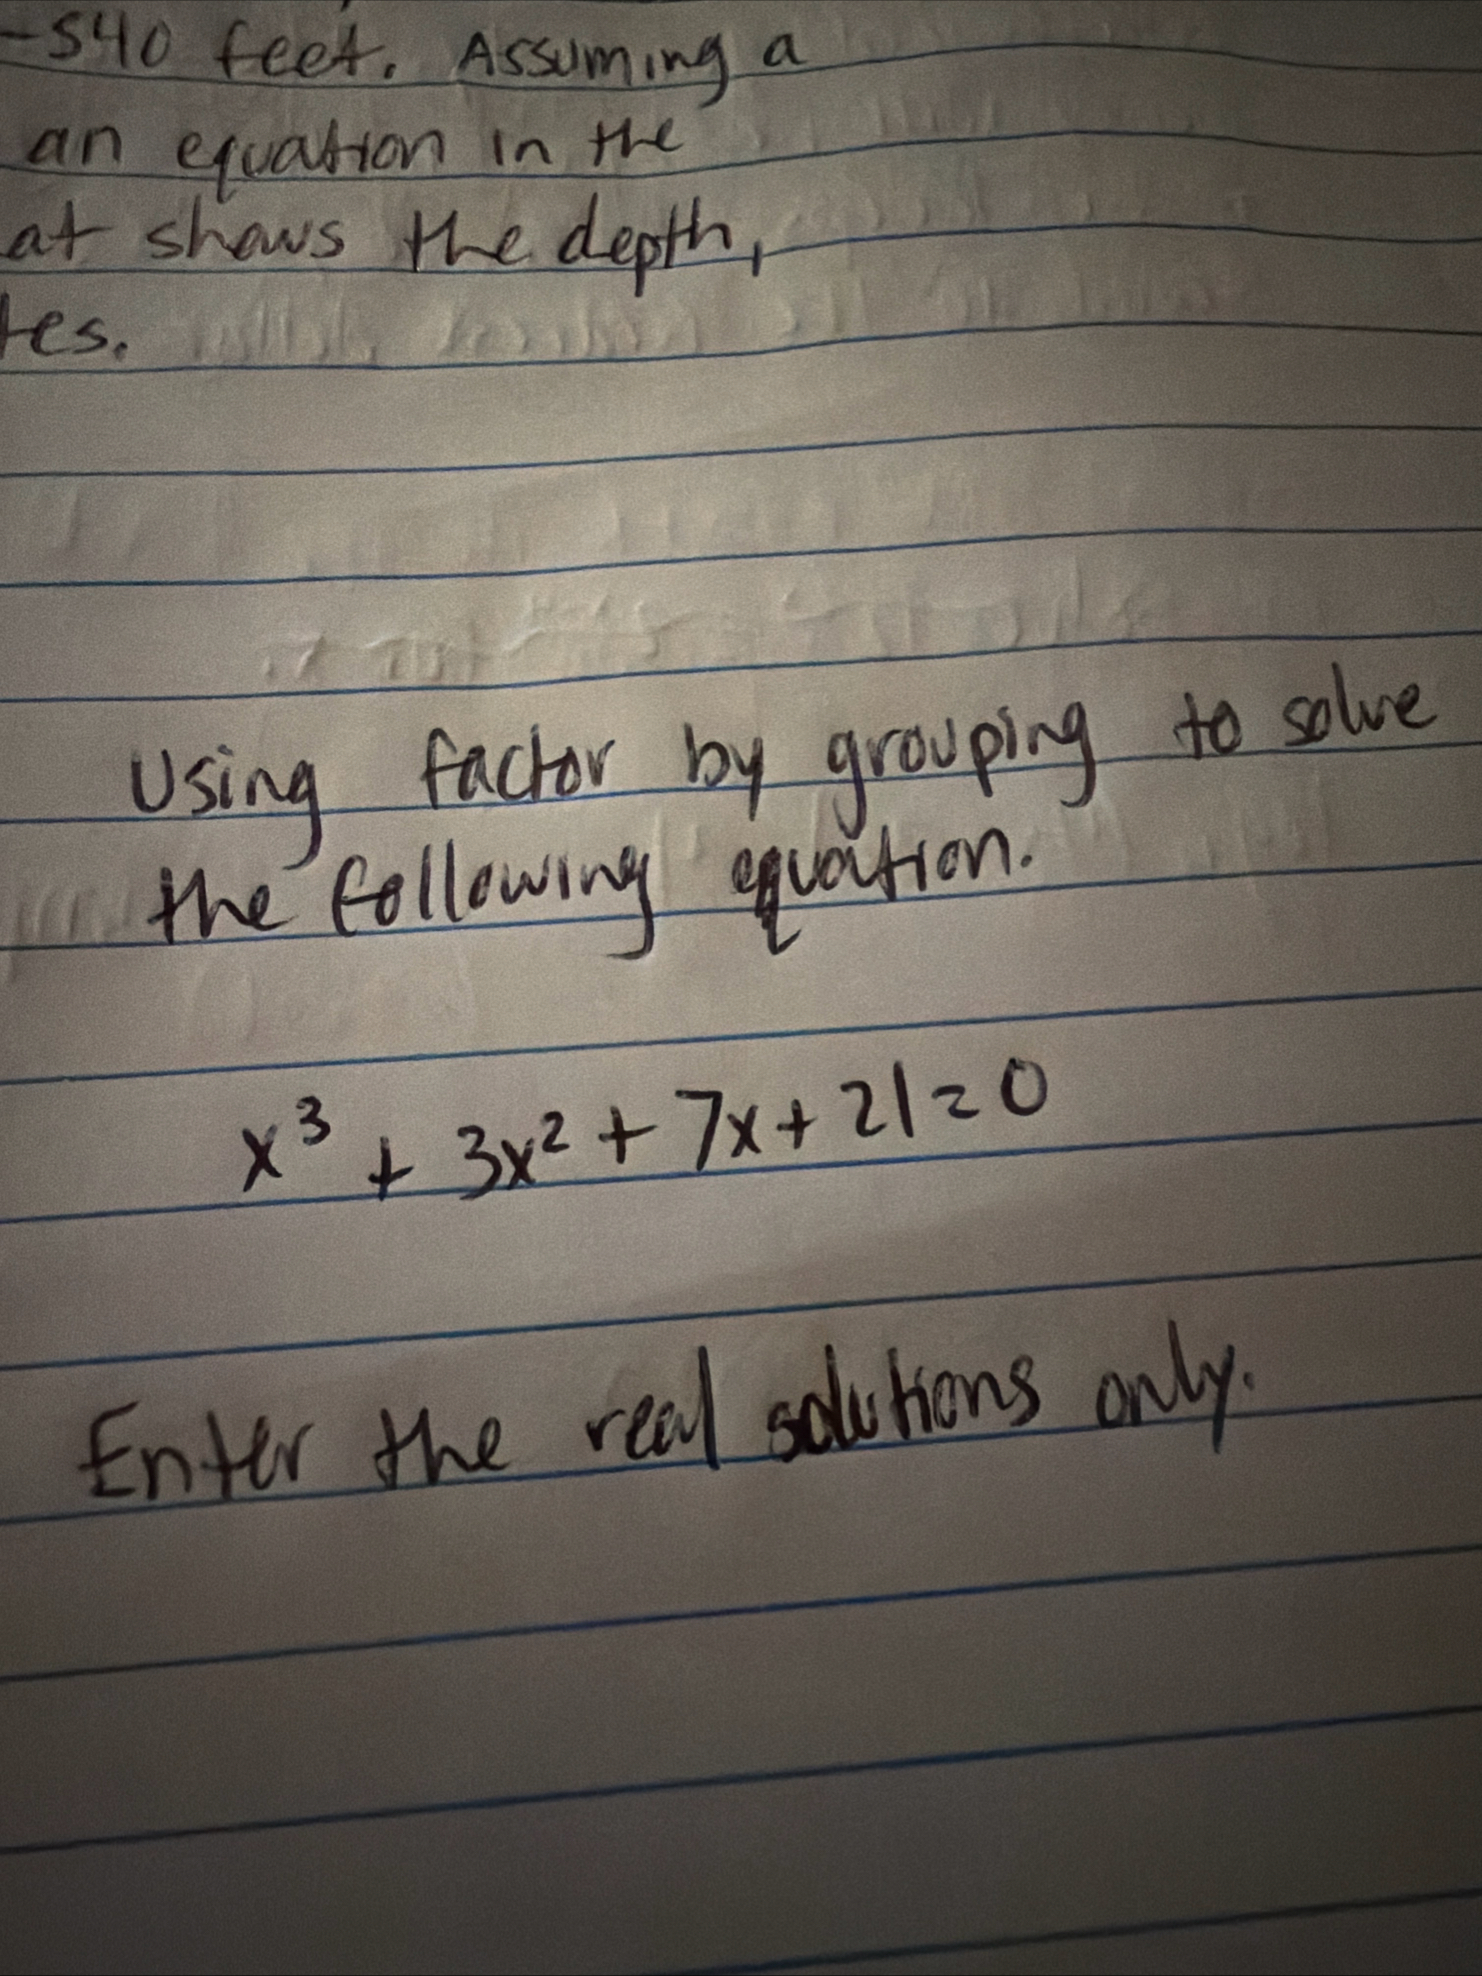 -540 feet. Assuming a
an equation in the
at shows the depth,
tes.
Using factor by grouping to solve
the following equation.
x³ + 3x² + 7x + 21 = 0
Enter the real solutions only.